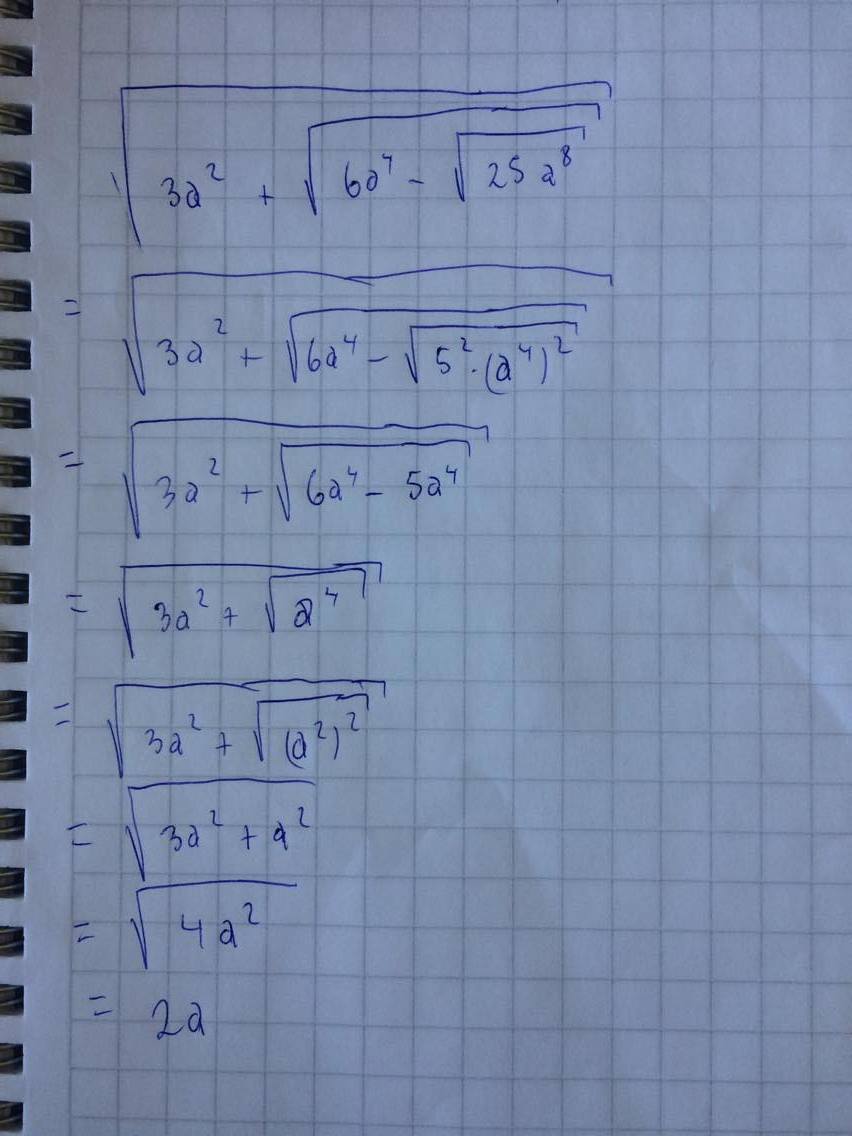 √(3a² + √(6a⁴ - √(25a⁸)))
= √(3a² + √(6a⁴ - √(5² · (a⁴)²)))
= √(3a² + √(6a⁴ - 5a⁴))
= √(3a² + √(a⁴))
= √(3a² + √((a²)²))
= √(3a² + a²)
= √(4a²)
= 2a